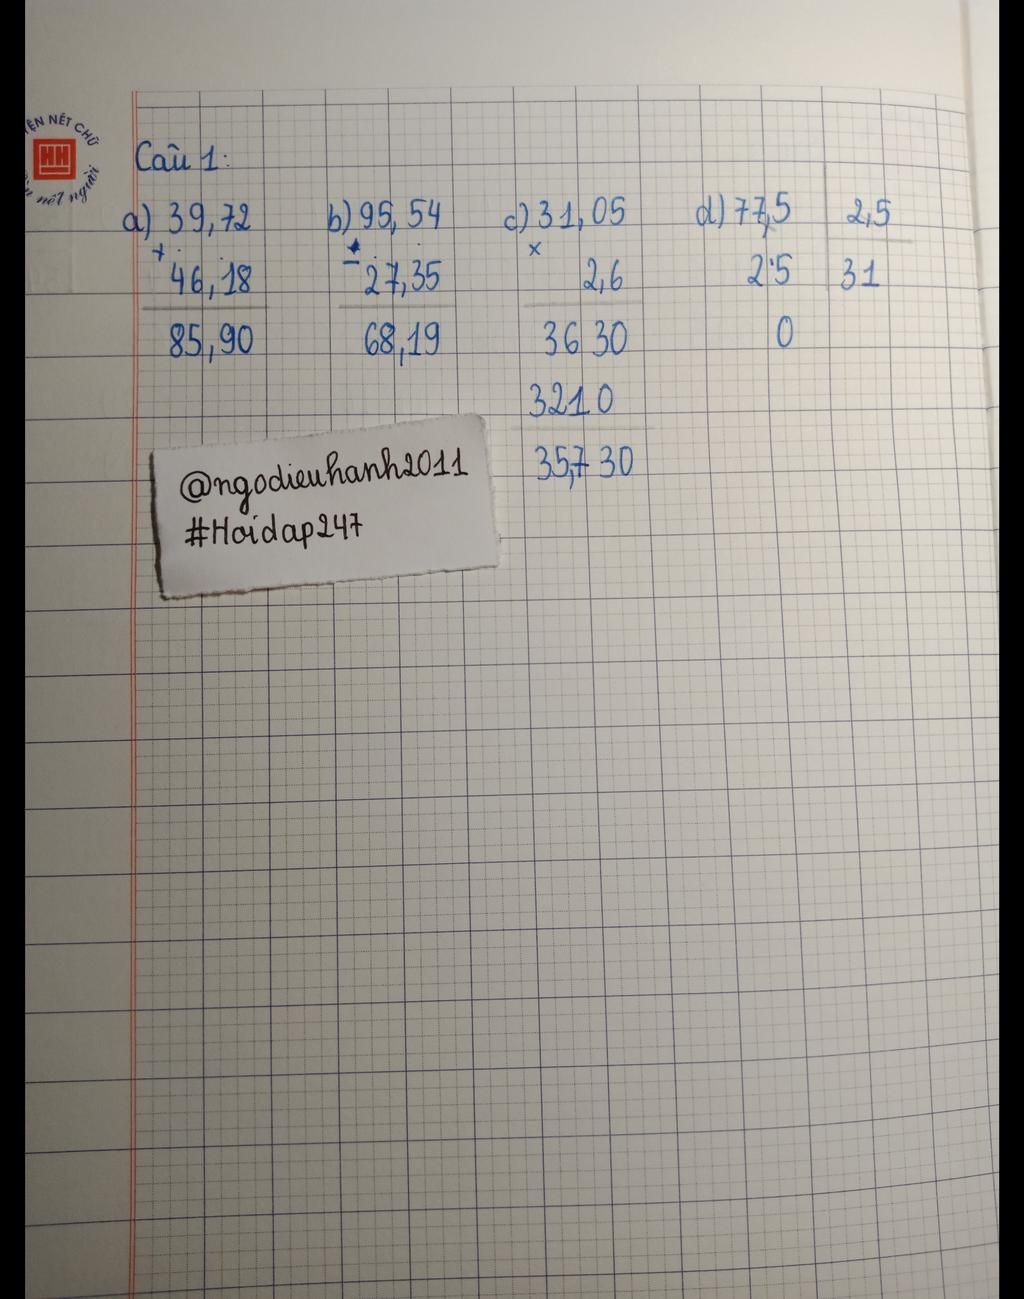 ỆN NÉT CHỮ
HH
nét người
Câu 1:
a) 39,72 b) 95,54 c) 31,05 d) 77,5 2,5
+ - ×
46,18 27,35 2,6 25 31
85,90 68,19 3630 0
3210
35,730
@ngodieuhanh2011
#Hoidap247